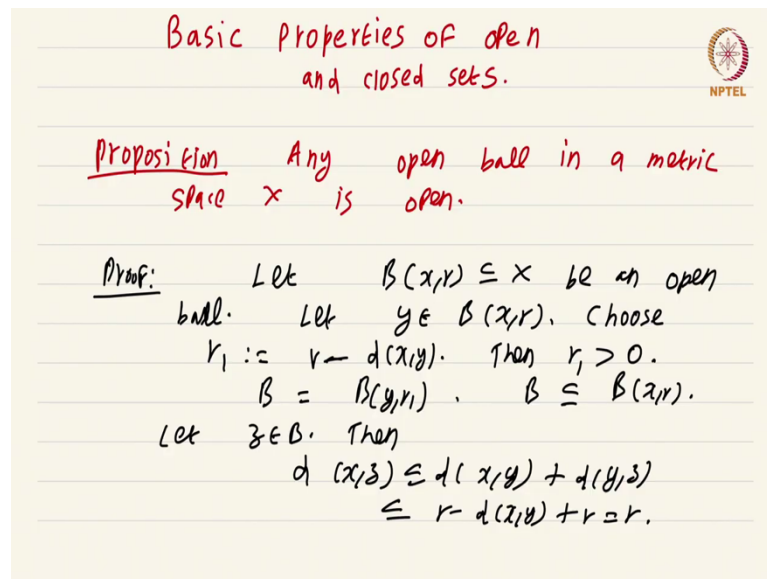 Basic Properties of open
and closed sets.
NPTEL
Proposition Any open ball in a metric
space X is open.
Proof: Let B(x,r) ⊆ X be an open
ball. Let y ∈ B(x,r). Choose
r₁ := r - d(x,y). Then r₁ > 0.
B = B(y,r₁). B ⊆ B(x,r).
Let z ∈ B. Then
d(x,z) ≤ d(x,y) + d(y,z)
≤ r - d(x,y) + r = r.